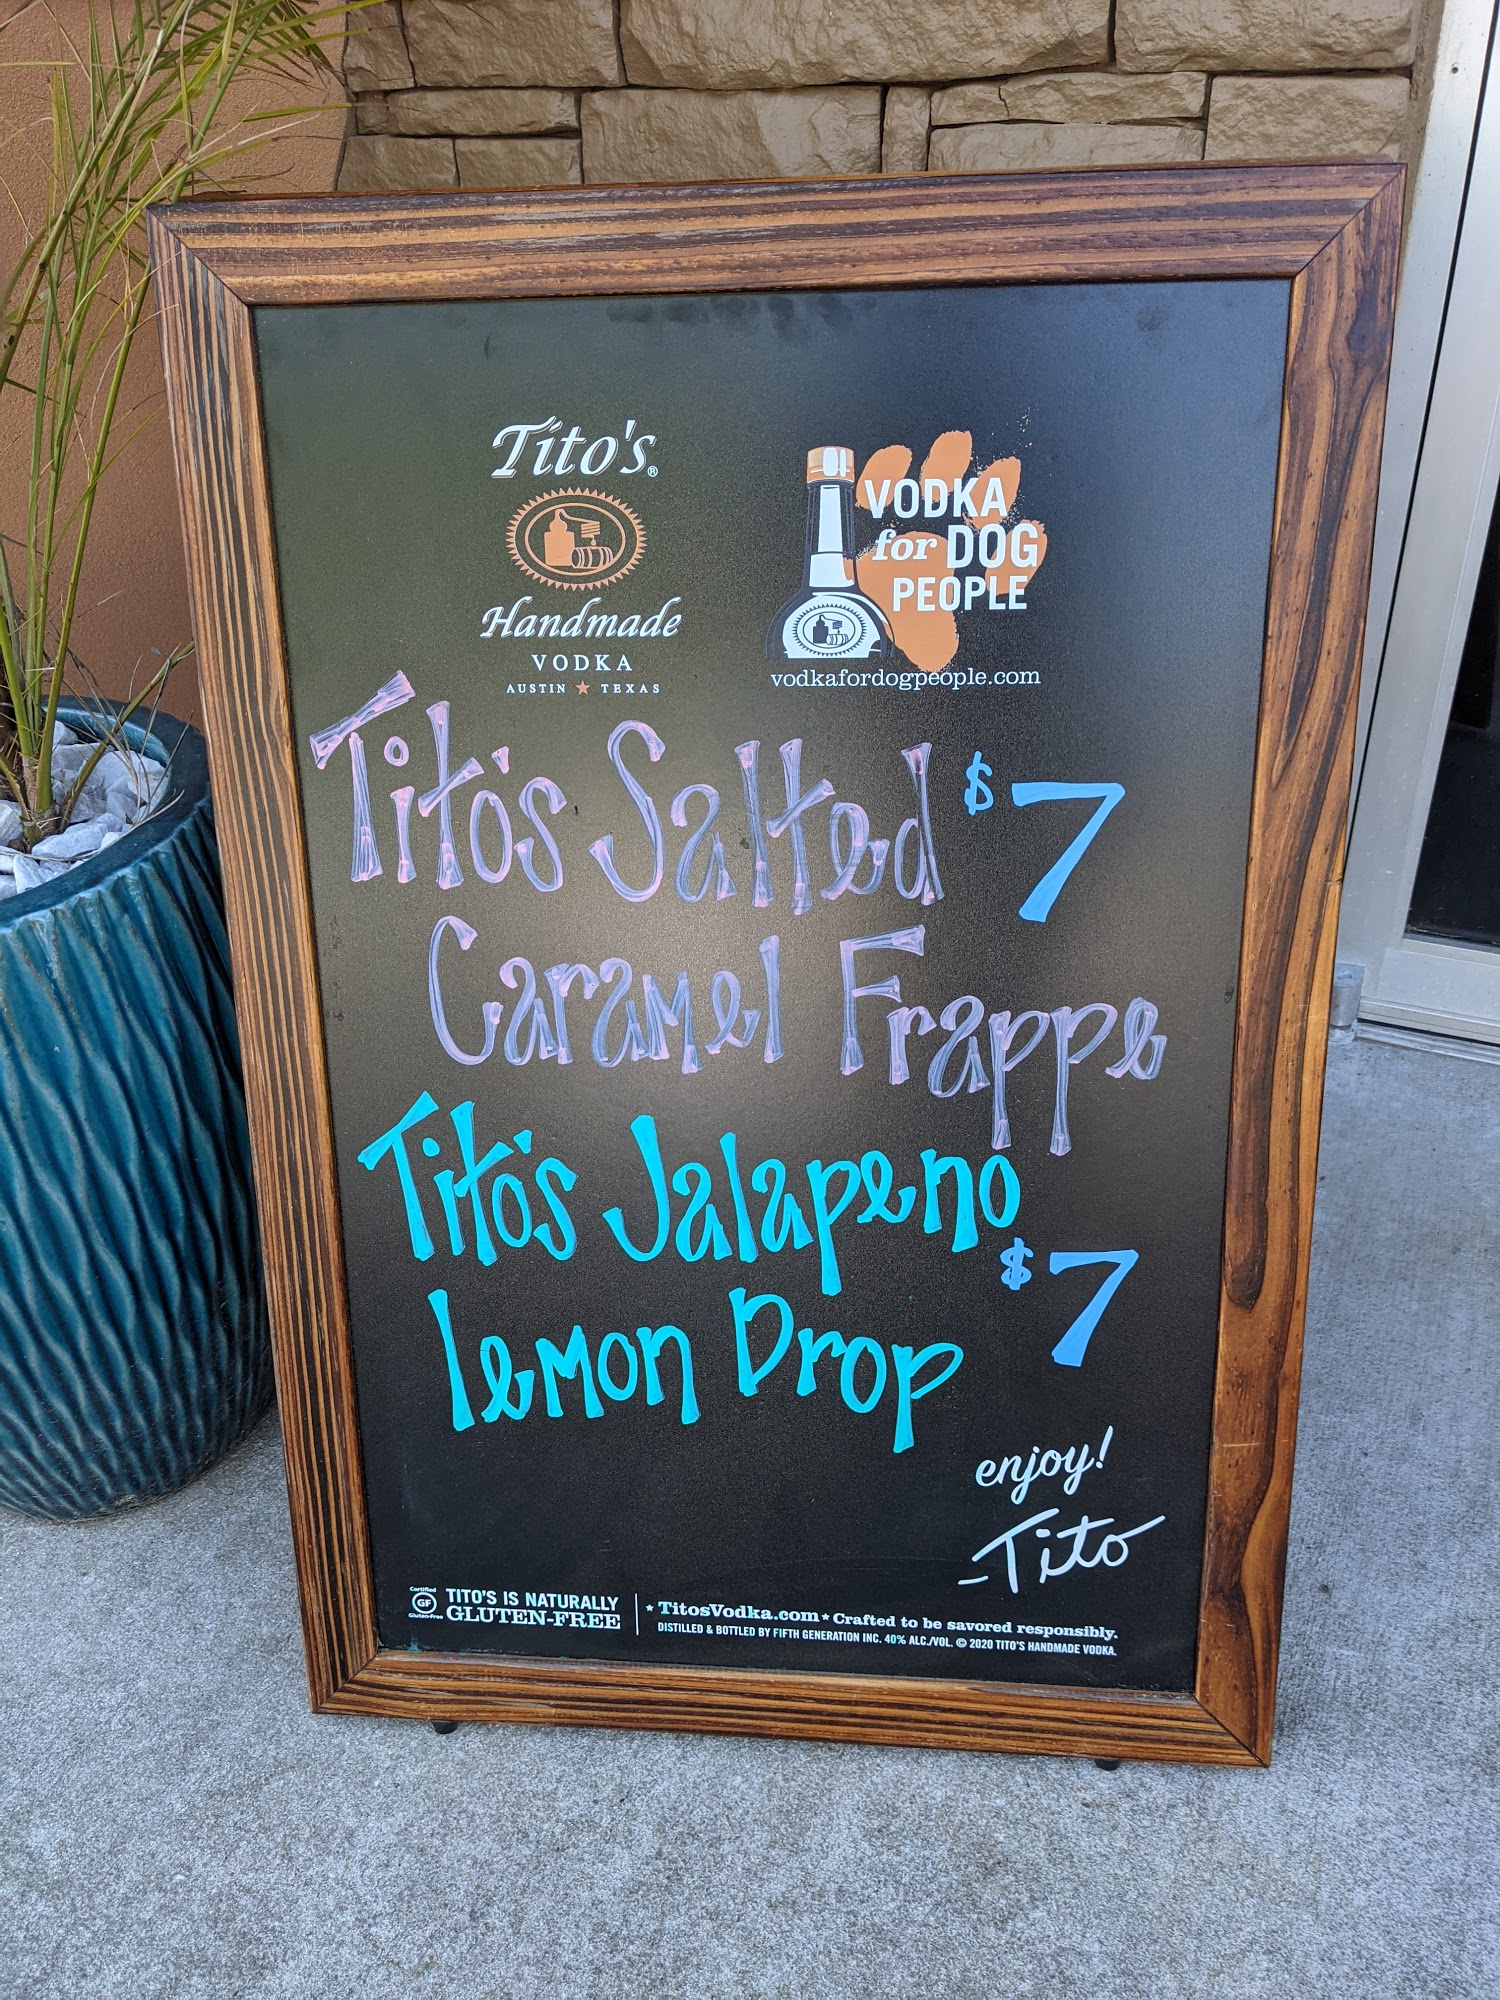 Tito's®
Handmade
VODKA
AUSTIN ★ TEXAS
VODKA
for DOG
PEOPLE
vodkafordogpeople.com
Tito's Salted $7
Caramel Frappe
Tito's Jalapeno
lemon Drop $7
enjoy!
-Tito
Certified
GF
Gluten-Free
TITO'S IS NATURALLY
GLUTEN-FREE
★ TitosVodka.com ★ Crafted to be savored responsibly.
DISTILLED & BOTTLED BY FIFTH GENERATION INC. 40% ALC./VOL. © 2020 TITO'S HANDMADE VODKA.